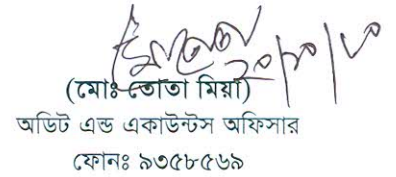 (মোঃ তোতা মিয়া)
অডিট এন্ড একাউন্টস অফিসার
ফোনঃ ৯৩৫৮৫৬৯